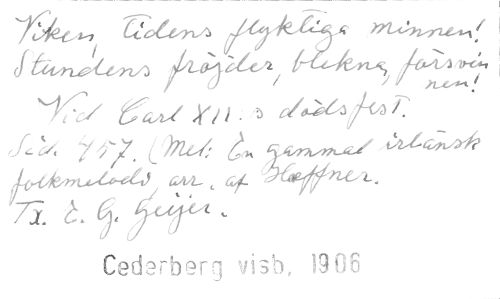 Viken, tidens flyktiga minnen!
Stundens fröjder, blekna, försvin
nen!
Vid Carl XII:s dödsfest.
Sid. 457. (Mel: En gammal irländsk
folkmelodi, arr. af Hæffner.
Tx. E. G. Geijer.
Cederberg visb, 1906